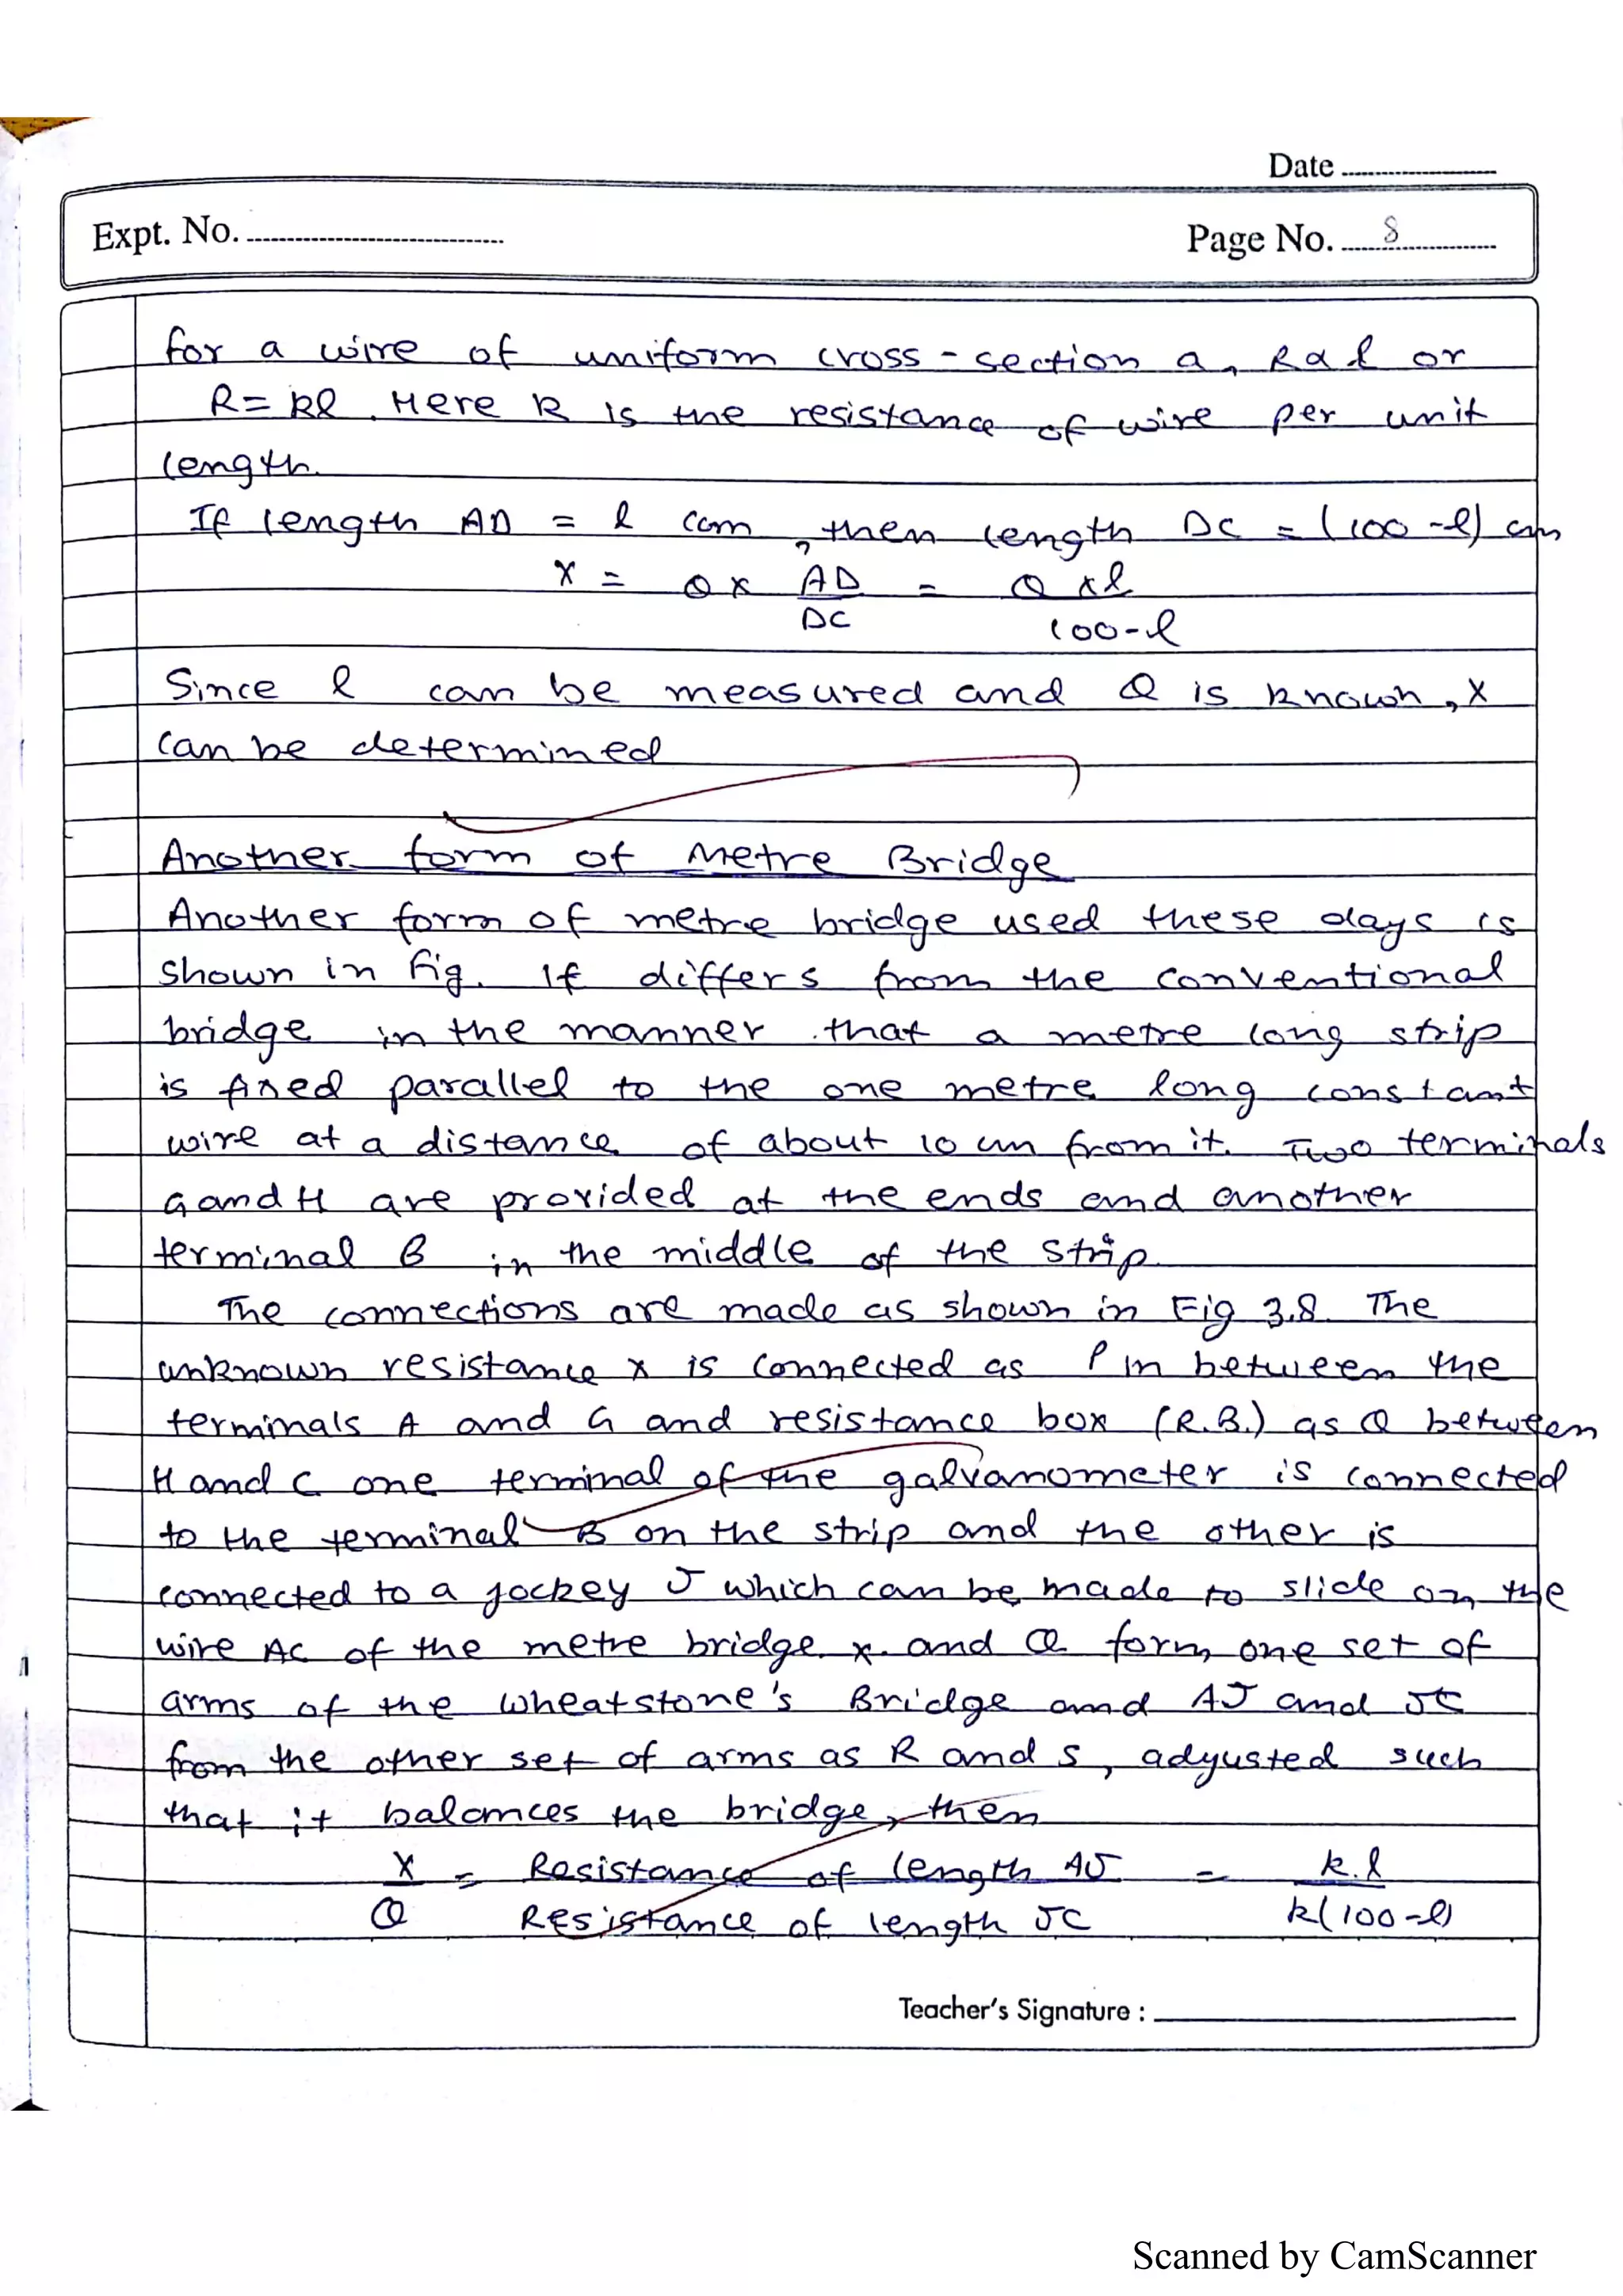 Date
Expt. No.
Page No. 8
for a wire of uniform cross-section a, R α l or
R = kl. Here k is the resistance of wire per unit
length.
If length AD = l cm, then length DC = (100-l) cm
X = Q x AD/DC = Q x l/100-l
Since l can be measured and Q is known, X
can be determined
Another form of Metre Bridge
Another form of metre bridge used these days is
shown in fig. If differs from the conventional
bridge in the manner that a metre long strip
is fixed parallel to the one metre long constant
wire at a distance of about 10 cm from it. Two terminals
G and H are provided at the ends and another
terminal B in the middle of the strip.
The connections are made as shown in Fig 3.8. The
unknown resistance x is connected as P in between the
terminals A and G and resistance box (R.B.) as Q between
H and C one terminal of the galvanometer is connected
to the terminal B on the strip and the other is
connected to a jockey J which can be made to slide on the
wire AC of the metre bridge. x. and Q form one set of
arms of the wheatstone's Bridge and AJ and JC
from the other set of arms as R and S, adyusted such
that it balances the bridge, then
X/Q = Resistance of length AJ/Resistance of length JC = k.l/k(100-l)
Teacher's Signature :
Scanned by CamScanner